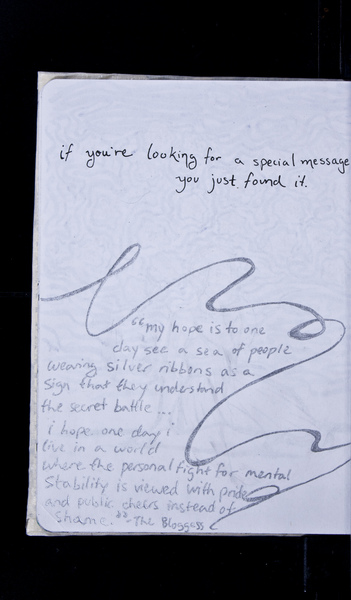 if you're looking for a special message
you just found it.
"my hope is to one
day see a sea of people
wearing silver ribbons as a
sign that they understand
the secret battle ...
i hope one day i
live in a world
where the personal fight for mental
stability is viewed with pride
and public cheers instead of
shame." - The Bloggess